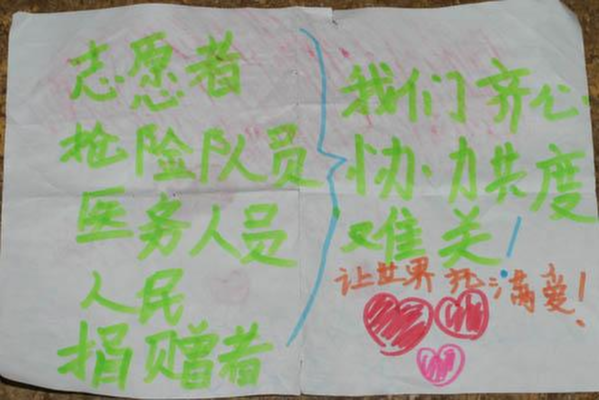 志愿者
抢险队员
医务人员
人民
捐赠者
我们齐心
协力共度
难关!
让世界充满爱!